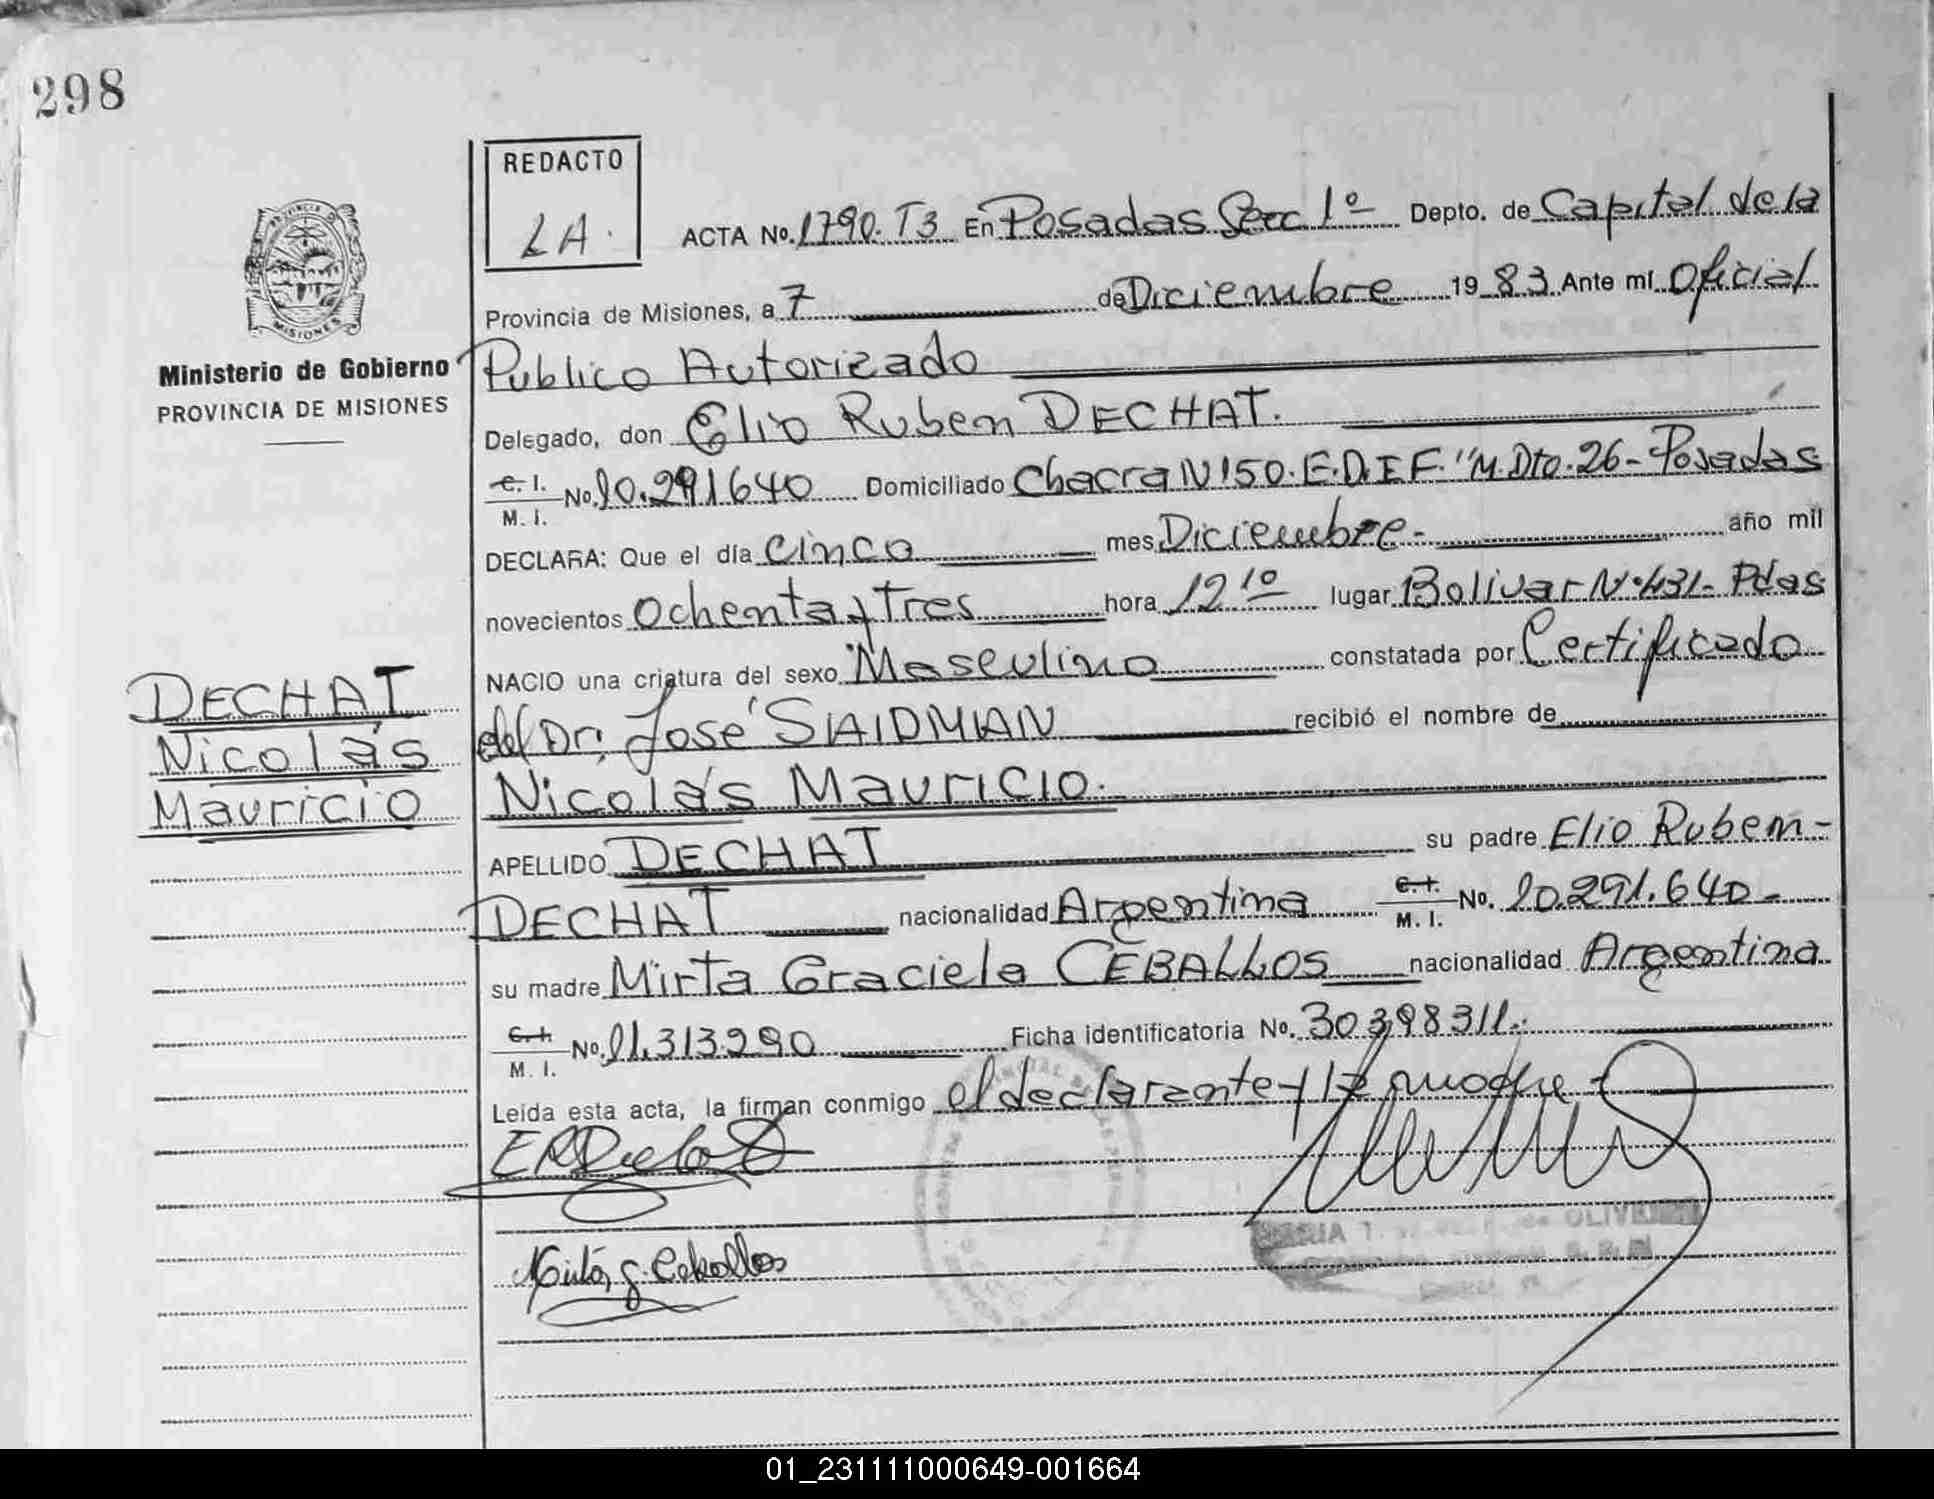 298
REDACTO
LA.
ACTA No. 1790. T3 En Posadas Secc 1º Depto. de Capital de la
Provincia de Misiones, a 7 de Diciembre 19 83 Ante mí Oficial
Publico Autorizado
Delegado, don Elio Ruben DECHAT.
C. I.
M. I.
No. 10.291640 Domiciliado Chacra Nº 150. E.D.I F. "M. Dto. 26 - Posadas
DECLARA: Que el día Cinco mes Diciembre - año mil
novecientos Ochenta y Tres hora 12 10 lugar Bolivar Nº 431 - Pdas
NACIO una criatura del sexo Masculino constatada por Certificado
del Dr. José SIAIDMAN recibió el nombre de
Nicolás Mauricio.
APELLIDO DECHAT su padre Elio Ruben -
DECHAT nacionalidad Argentina C. I.
M. I.
No. 10.291.640 -
su madre Mirta Graciela CEBALLOS nacionalidad Argentina
C. I.
M. I.
No. 11.313.290 Ficha identificatoria No. 30398311.
Leída esta acta, la firman conmigo el declarante y la madre -
Mirta G. Ceballos
OLIVEIRA
Ministerio de Gobierno
PROVINCIA DE MISIONES
MISIONES
DECHAT
Nicolás
Mauricio
01_231111000649-001664